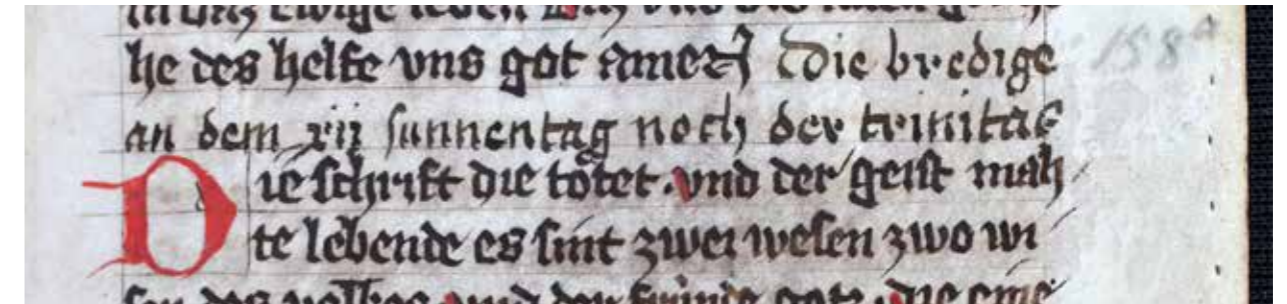 he des helfe vns got amen Die bredige
an dem xij sunnentag noch der trinitas
Die schrift die tötet. vnd der geist mah
te lebende es sint zwei wesen zwo wi
158a